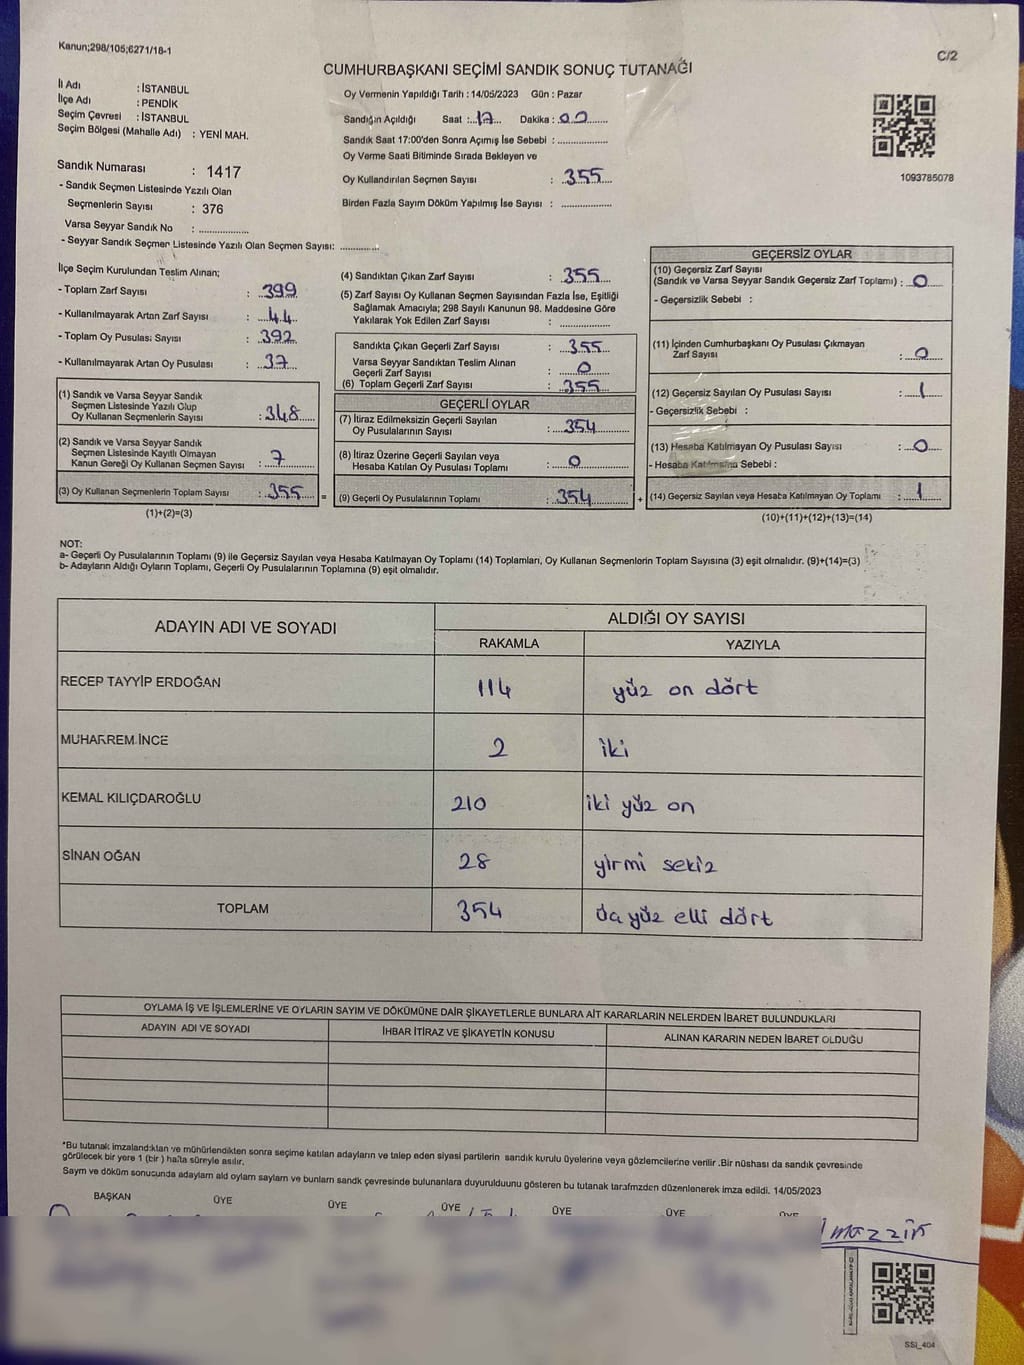 Kanun;298/105;6271/18-1
C/2
CUMHURBAŞKANI SEÇİMİ SANDIK SONUÇ TUTANAĞI
İl Adı : İSTANBUL
İlçe Adı : PENDİK
Seçim Çevresi : İSTANBUL
Seçim Bölgesi (Mahalle Adı) : YENİ MAH.
Oy Vermenin Yapıldığı Tarih : 14/05/2023 Gün : Pazar
Sandığın Açıldığı Saat : 17 Dakika : 00
Sandık Saat 17:00'den Sonra Açımış İse Sebebi :
Oy Verme Saati Bitiminde Sırada Bekleyen ve
Oy Kullandırılan Seçmen Sayısı : 355
Birden Fazla Sayım Döküm Yapılmış İse Sayısı :
1093785078
Sandık Numarası : 1417
- Sandık Seçmen Listesinde Yazılı Olan
Seçmenlerin Sayısı : 376
Varsa Seyyar Sandık No :
- Seyyar Sandık Seçmen Listesinde Yazılı Olan Seçmen Sayısı:
İlçe Seçim Kurulundan Teslim Alınan;
- Toplam Zarf Sayısı : 399
- Kullanılmayarak Artan Zarf Sayısı : 44
- Toplam Oy Pusulası Sayısı : 392
- Kullanılmayarak Artan Oy Pusulası : 37
(1) Sandık ve Varsa Seyyar Sandık
Seçmen Listesinde Yazılı Olup
Oy Kullanan Seçmenlerin Sayısı : 348
(2) Sandık ve Varsa Seyyar Sandık
Seçmen Listesinde Kayıtlı Olmayan
Kanun Gereği Oy Kullanan Seçmen Sayısı : 7
(3) Oy Kullanan Seçmenlerin Toplam Sayısı : 355 =
(1)+(2)=(3)
(4) Sandıktan Çıkan Zarf Sayısı : 355
(5) Zarf Sayısı Oy Kullanan Seçmen Sayısından Fazla İse, Eşitliği
Sağlamak Amacıyla; 298 Sayılı Kanunun 98. Maddesine Göre
Yakılarak Yok Edilen Zarf Sayısı :
Sandıkta Çıkan Geçerli Zarf Sayısı : 355
Varsa Seyyar Sandıktan Teslim Alınan
Geçerli Zarf Sayısı : 0
(6) Toplam Geçerli Zarf Sayısı : 355
GEÇERLİ OYLAR
(7) İtiraz Edilmeksizin Geçerli Sayılan
Oy Pusulalarının Sayısı : 354
(8) İtiraz Üzerine Geçerli Sayılan veya
Hesaba Katılan Oy Pusulası Toplamı : 0
(9) Geçerli Oy Pusulalarının Toplamı : 354 +
GEÇERSİZ OYLAR
(10) Geçersiz Zarf Sayısı
(Sandık ve Varsa Seyyar Sandık Geçersiz Zarf Toplamı) : 0
- Geçersizlik Sebebi :
(11) İçinden Cumhurbaşkanı Oy Pusulası Çıkmayan
Zarf Sayısı : 0
(12) Geçersiz Sayılan Oy Pusulası Sayısı : 1
- Geçersizlik Sebebi :
(13) Hesaba Katılmayan Oy Pusulası Sayısı : 0
- Hesaba Katılmama Sebebi :
(14) Geçersiz Sayılan veya Hesaba Katılmayan Oy Toplamı : 1
(10)+(11)+(12)+(13)=(14)
NOT:
a- Geçerli Oy Pusulalarının Toplamı (9) ile Geçersiz Sayılan veya Hesaba Katılmayan Oy Toplamı (14) Toplamları, Oy Kullanan Seçmenlerin Toplam Sayısına (3) eşit olmalıdır. (9)+(14)=(3)
b- Adayların Aldığı Oyların Toplamı, Geçerli Oy Pusulalarının Toplamına (9) eşit olmalıdır.
ADAYIN ADI VE SOYADI
ALDIĞI OY SAYISI
RAKAMLA YAZIYLA
RECEP TAYYİP ERDOĞAN 114 yüz on dört
MUHARREM İNCE 2 iki
KEMAL KILIÇDAROĞLU 210 iki yüz on
SİNAN OĞAN 28 yirmi sekiz
TOPLAM 354 yüz elli dört
OYLAMA İŞ VE İŞLEMLERİNE VE OYLARIN SAYIM VE DÖKÜMÜNE DAİR ŞİKAYETLERLE BUNLARA AİT KARARLARIN NELERDEN İBARET BULUNDUKLARI
ADAYIN ADI VE SOYADI İHBAR İTİRAZ VE ŞİKAYETİN KONUSU ALINAN KARARIN NEDEN İBARET OLDUĞU
*Bu tutanak imzalandıktan ve mühürlendikten sonra seçime katılan adayların ve talep eden siyasi partilerin sandık kurulu üyelerine veya gözlemcilerine verilir .Bir nüshası da sandık çevresinde
görülecek bir yere 1 (bir ) hafta süreyle asılır.
Sayım ve döküm sonucunda adayların ald oylam saylam ve bunlam sandk çevresinde bulunanlara duyurulduunu gösteren bu tutanak tarafmzden düzenlenerek imza edildi. 14/05/2023
BAŞKAN ÜYE ÜYE ÜYE ÜYE ÜYE ÜYE
SSL_404